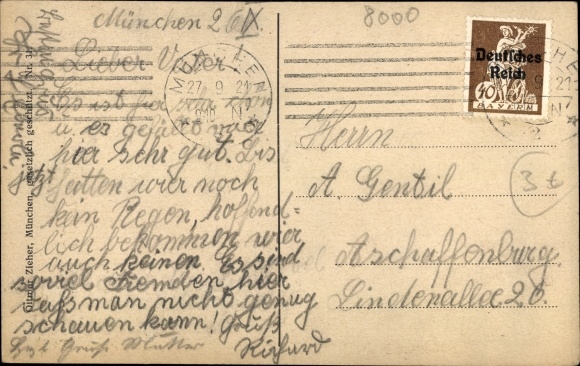 München 26/IX
8000
Lieber Vater
Es ist sehr schön
u. es gefällt mir
hier sehr gut. Bis
jetzt hatten wir noch
kein Regen, hoffend-
lich bekommen wir
auch keinen. Es sind
soviel Fremden hier
daß man nicht genug
schauen kann! Gruß
Richard
Herzl. Gruß Mutter
MÜNCHEN
27 9 21
Deutsches
Reich
40
BAYERN
Herrn
A. Gentil
Aschaffenburg
Lindenallee 26.
3t
Ottmar Zieher, München, gesetzlich geschützt. Nr.